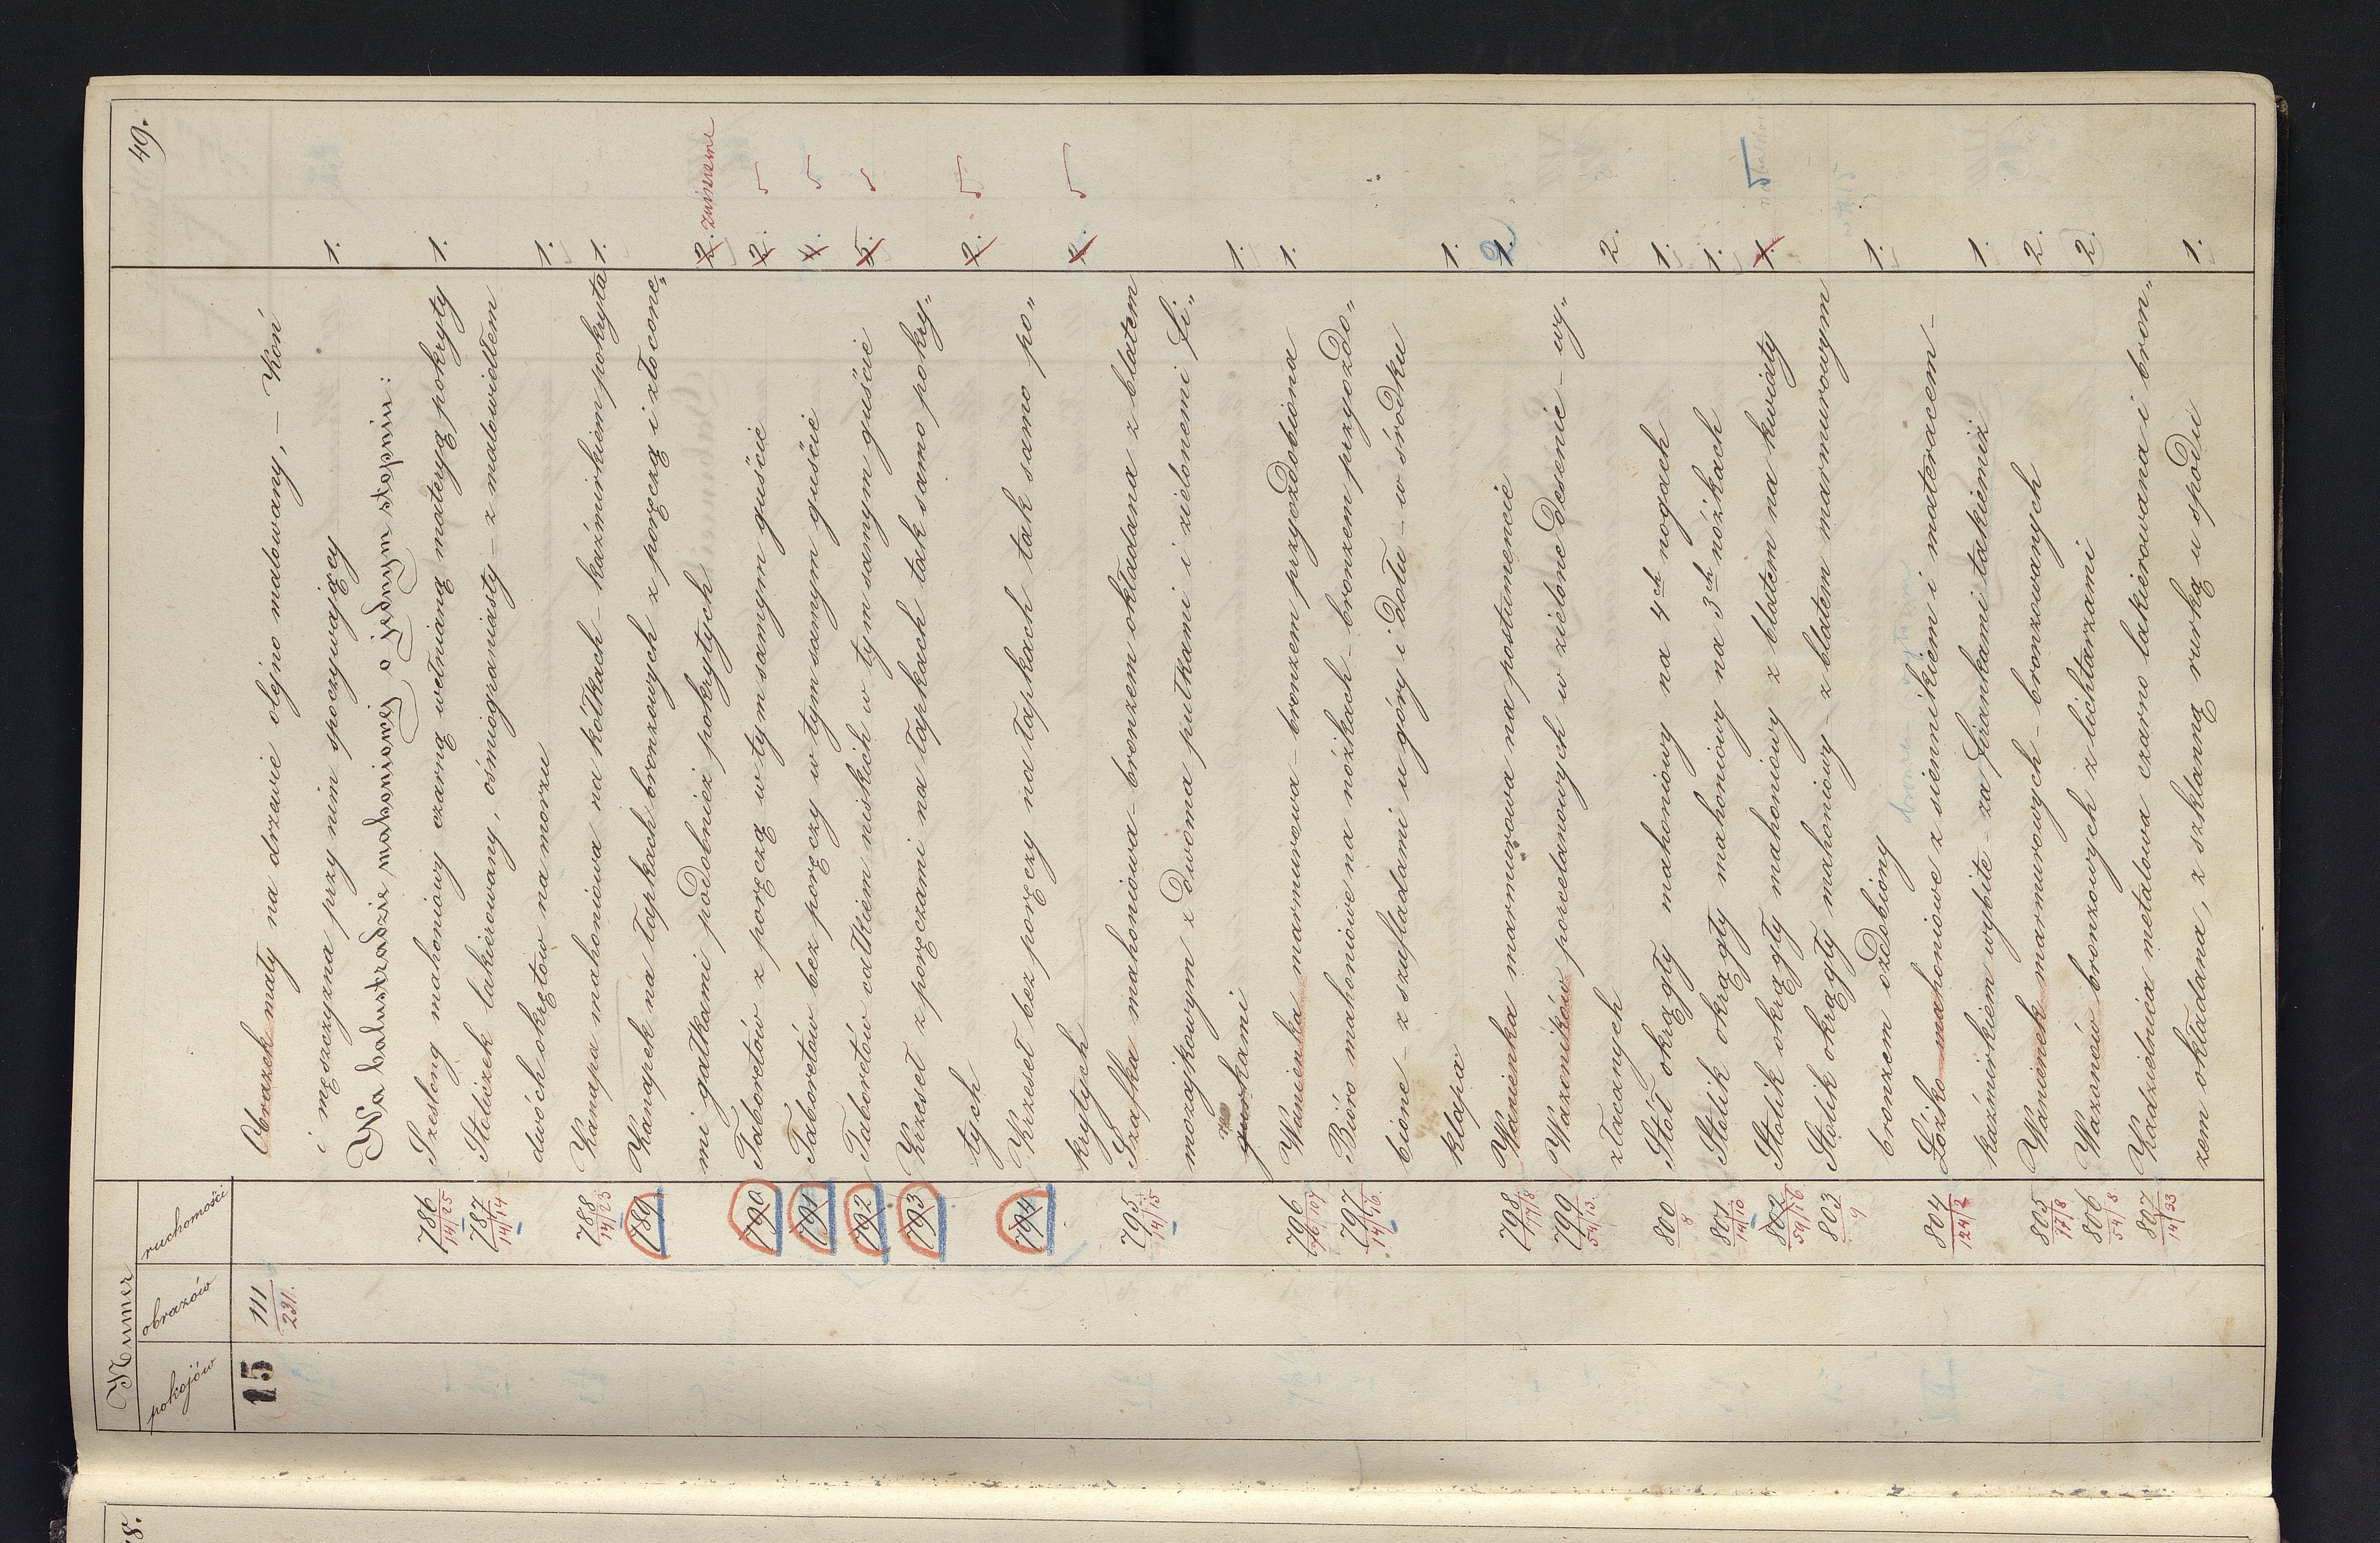 49.
Numer
pokojów obrazów ruchomości
15 111 Obrazek mały na drzewie olejno malowany, – Koń
231. i męszczyzna przy nim spoczywający 1.
Wa badustradzie mahoniowej o jednym stopniu:
786 Szeslong mahoniowy czarną wełnianą materyą pokryty 1.
14/25
787 Stoliczek lakierowany, ośmiograniasty – z malowidłem
14/14 dwóch okrętów na morzu 1.
788 Kanapa mahoniowa na kółkach – kaźmirkiem pokryta 1.
14/23
789 Kanapek na łapkach bronzowych z poręczą i złocone„
mi gałkami podobnież pokrytych 2. zniszczone
790 Taboretów z poręczą w tym samym guście 2.
791 Taboretów bez poręczy w tym samym guście 4.
792 Taboretów całkiem niskich w tym samym guście 5.
793 Krzeseł z poręczami na łapkach tak samo pokry„
tych 2.
794 Krzeseł bez poręczy na łapkach tak samo po„
krytych
795 Szafka mahoniowa – bronzem okładana z blatem
14/15 mozajkowym z dwoma pułkami i zielonemi fi„
rankami 1.
796 Wanienka marmurowa – bronzem przyozdobiona 1.
76/107
797 Bióro mahoniowe na nóżkach – bronzem przyozdo„
14/16. bione – z szufladami u góry i dołu – w środku
klapa 1.
798 Wanienka marmurowa na postumencie 1.
77/8
799 Wazoników porcelanowych w zielone desenie – wy„
54/13. złacanych 2.
800 Stół okrągły mahoniowy na 4ch nogach 1.
8
801 Stolik okrągły mahoniowy na 3ch nóżkach 1.
14/10
802 Stolik okrągły mahoniowy z blatem na kwiaty 1.
54/16
803 Stolik okrągły mahoniowy – z blatem marmurowym
9 bronzem ozdobiony 1.
804 Łóżko mahoniowe z siennikiem i materacem –
124/2 kaźmirkiem wybite – za firankami takiemiż 1.
805 Wanienek marmurowych – bronzowanych 2.
77/8
806 Wazonów bronzowych z lichtarzami 2.
54/8.
807 Kadzielnica metalowa czarno lakierowana i bron„
14/33 zem okładana, z szklanną rurką u spodu 1.
8.